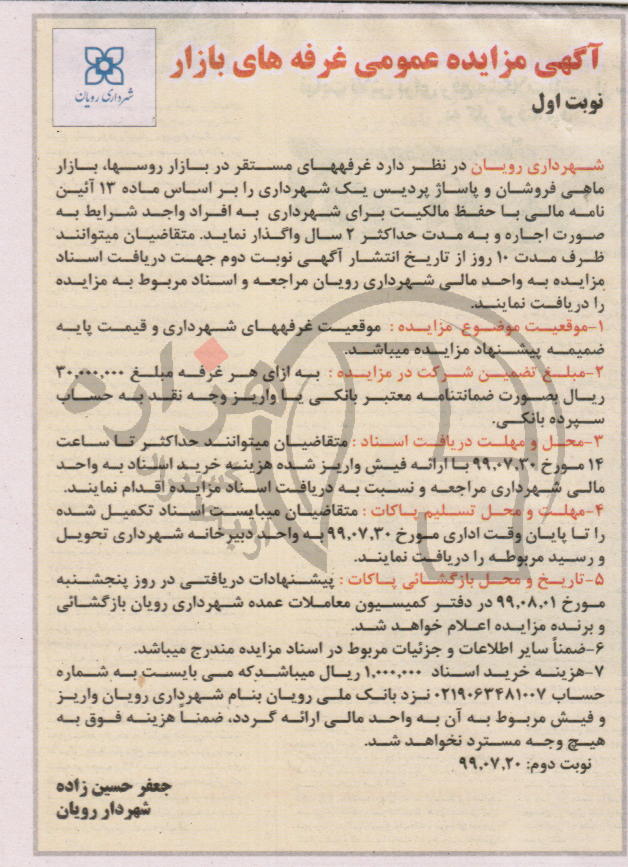 آگهی مزایده عمومی غرفه های بازار
شهرداری رویان
نوبت اول
شهرداری رویان در نظر دارد غرفههای مستقر در بازار روسها، بازار
ماهی فروشان و پاساژ پردیس یک شهرداری را بر اساس ماده ۱۳ آئین
نامه مالی با حفظ مالکیت برای شهرداری به افراد واجد شرایط به
صورت اجاره و به مدت حداکثر ۲ سال واگذار نماید. متقاضیان میتوانند
ظرف مدت ۱۰ روز از تاریخ انتشار آگهی نوبت دوم جهت دریافت اسناد
مزایده به واحد مالی شهرداری رویان مراجعه و اسناد مربوط به مزایده
را دریافت نمایند.
۱-موقعیت موضوع مزایده : موقعیت غرفههای شهرداری و قیمت پایه
ضمیمه پیشنهاد مزایده میباشد.
۲-مبلغ تضمین شرکت در مزایده : به ازای هر غرفه مبلغ ۳۰,۰۰۰,۰۰۰
ریال بصورت ضمانتنامه معتبر بانکی یا واریز وجه نقد به حساب
سپرده بانکی.
۳-محل و مهلت دریافت اسناد : متقاضیان میتوانند حداکثر تا ساعت
۱۴ مورخ ۹۹,۰۷,۳۰ با ارائه فیش واریز شده هزینه خرید اسناد به واحد
مالی شهرداری مراجعه و نسبت به دریافت اسناد مزایده اقدام نمایند.
۴-مهلت و محل تسلیم پاکات : متقاضیان میبایست اسناد تکمیل شده
را تا پایان وقت اداری مورخ ۹۹,۰۷,۳۰ به واحد دبیرخانه شهرداری تحویل
و رسید مربوطه را دریافت نمایند.
۵-تاریخ و محل بازگشائی پاکات : پیشنهادات دریافتی در روز پنجشنبه
مورخ ۹۹,۰۸,۰۱ در دفتر کمیسیون معاملات عمده شهرداری رویان بازگشائی
و برنده مزایده اعلام خواهد شد.
۶-ضمناً سایر اطلاعات و جزئیات مربوط در اسناد مزایده مندرج میباشد.
۷-هزینه خرید اسناد ۱,۰۰۰,۰۰۰ ریال میباشدکه می بایست به شماره
حساب ۰۲۱۹۰۶۳۴۸۱۰۰۷ نزد بانک ملی رویان بنام شهرداری رویان واریز
و فیش مربوط به آن به واحد مالی ارائه گردد، ضمناً هزینه فوق به
هیچ وجه مسترد نخواهد شد.
نوبت دوم: ۹۹,۰۷,۲۰
جعفر حسین زاده
شهردار رویان
هزاره